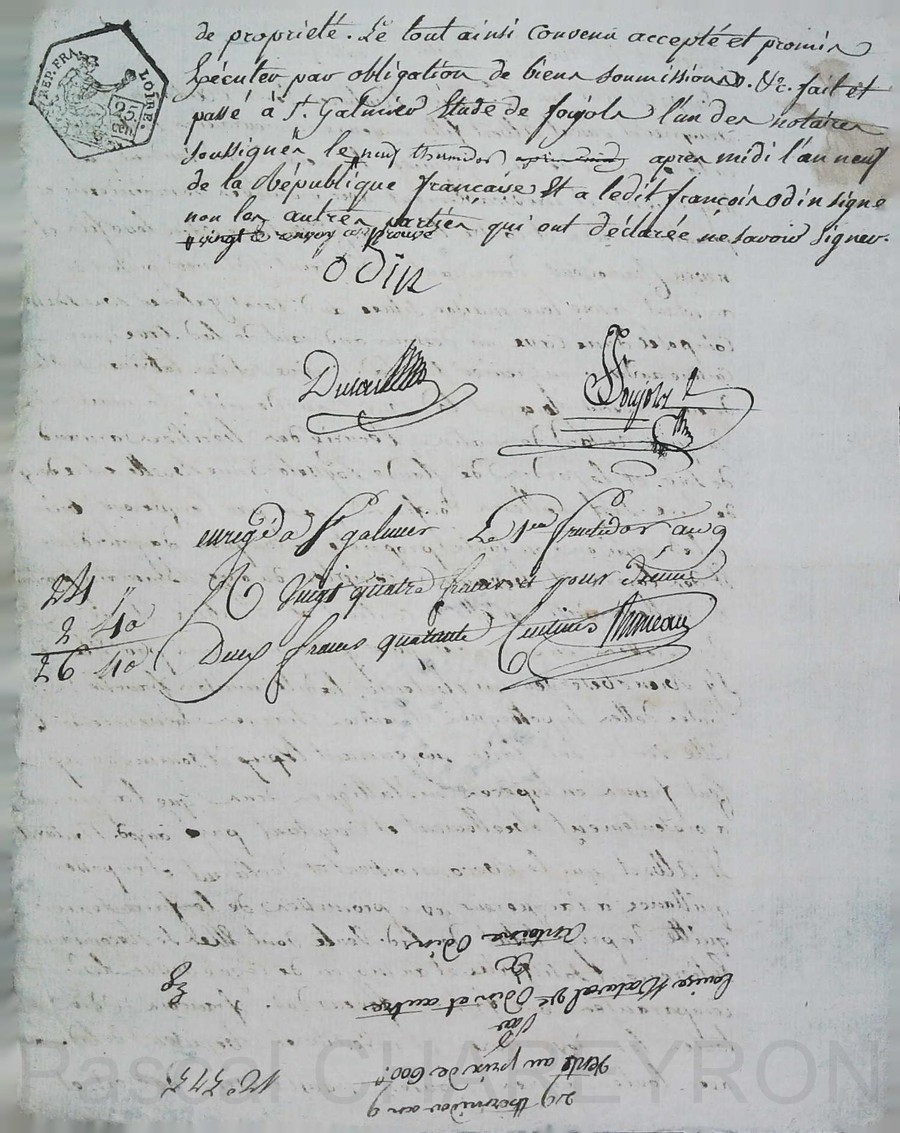 REP. FRA.
LOIRE.
25 CEN
de propriété. Le tout ainsi convenu accepté et promis
Exécuter par obligation de biens soumissions. &c. fait et
passé à St. Galmier Etude de foujols l'un des notaires
soussignés le neuf thermidor après midi l'an neuf
de la République francaise Et a ledit françois Odin signé
non les autres parties qui ont déclarée ne savoir signer.
vingt le renvoy approuvé
Odin
Foujols
enregé a St galmier Le 1er fructidor an 9
24 "
R Vingt quatre francs et pour
2 40
Deux francs quarante Centimes
26 40
29 thermidor an 9
Vente au prix de 600
N° 575
Par
Louise Matural Ve Odin et autre
A
Antoine Odin
Pascal CHAREYRON